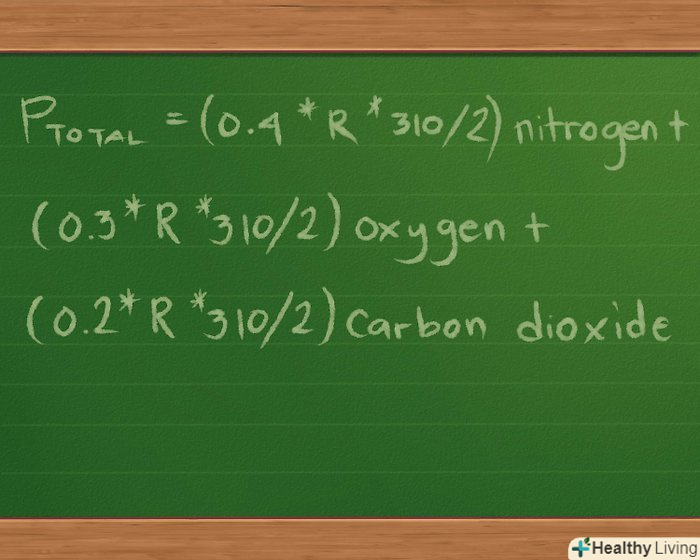 PTOTAL = (0.4 * R * 310/2) nitrogen +
(0.3* R *310/2) oxygen +
(0.2* R *310/2) carbon dioxide
Healthy Living